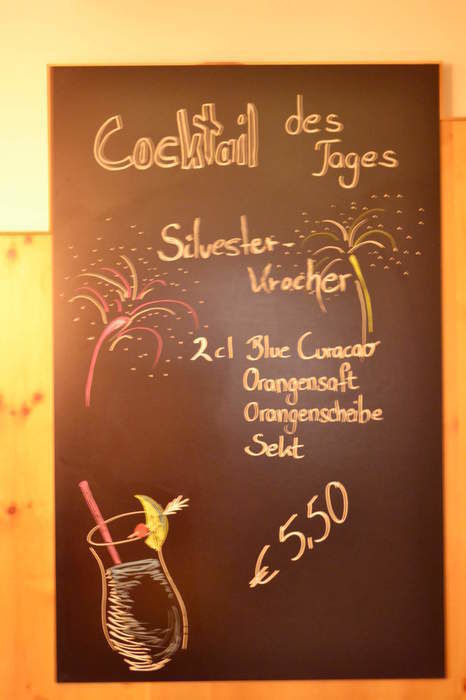 Cocktail des
Tages
Silvester-
Kracher
2 cl Blue Curacao
Orangensaft
Orangenscheibe
Sekt
€ 5,50